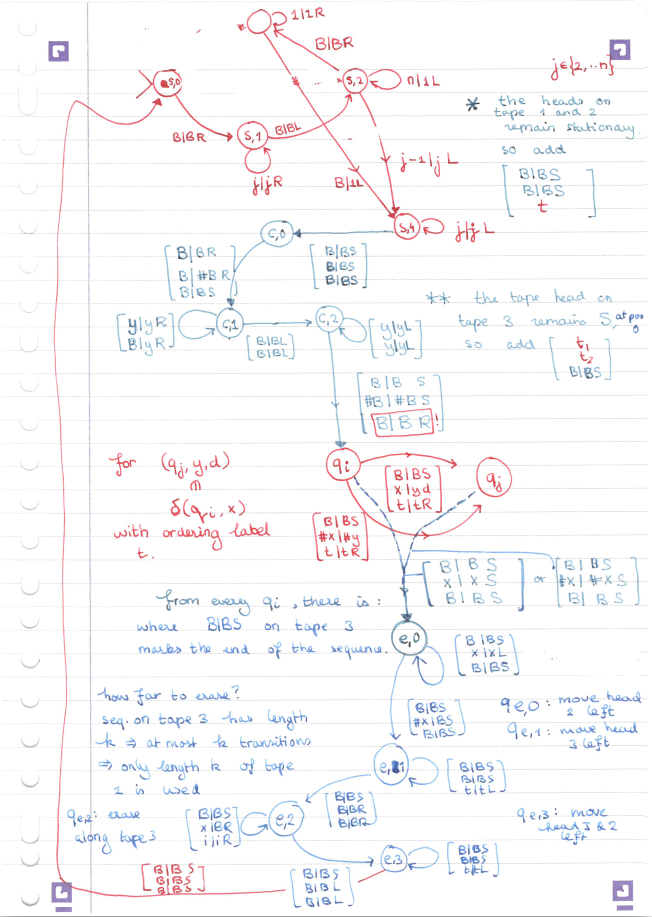 1|1R
B|BR
s,0
s,2
n|1L
j∈{2,..n}
B|BR
s,1
B|BL
j|jR
B|1L
j-1|j L
* the heads on
tape 1 and 2
remain stationary
so add
[B|BS
B|BS
t]
s,4
j|j L
c,0
[B|BR
B|#BR
B|BS]
[B|BS
B|BS
B|BS]
[y|yR
B|yR]
c,1
[B|BL
B|BL]
c,2
[y|yL
y|yL]
** the tape head on
tape 3 remains S, at pos 0
so add [t₁
t₂
B|BS]
[B|B S
#B|#B S
B|B R]!
for (qj, y, d)
∈
δ(qi, x)
with ordering label
t.
qi
[B|BS
x|yd
t|tR]
qj
[B|BS
#x|#y
t|tR]
[B|B S
x|x S
B|B S]
or
[B|BS
#x|#xS
B|BS]
from every qi, there is:
where B|BS on tape 3
marks the end of the sequence.
e,0
[B|BS
x|xL
B|BS]
how far to erase?
seq. on tape 3 has length
k ⇒ at most k transitions
⇒ only length k of tape
2 is used
[B|BS
#x|BS
B|BS]
qe,0: move head
2 left
qe,1: move head
3 left
e,1
[B|BS
B|BS
t|tL]
qe,2: erase
along tape 3
[B|BS
x|BR
i|iR]
e,2
[B|BS
B|BR
B|BR]
qe,3: move
head 3 & 2
left
e,3
[B|BS
B|BS
t|tL]
[B|BS
B|BS
B|BS]
[B|BS
B|BL
B|BL]